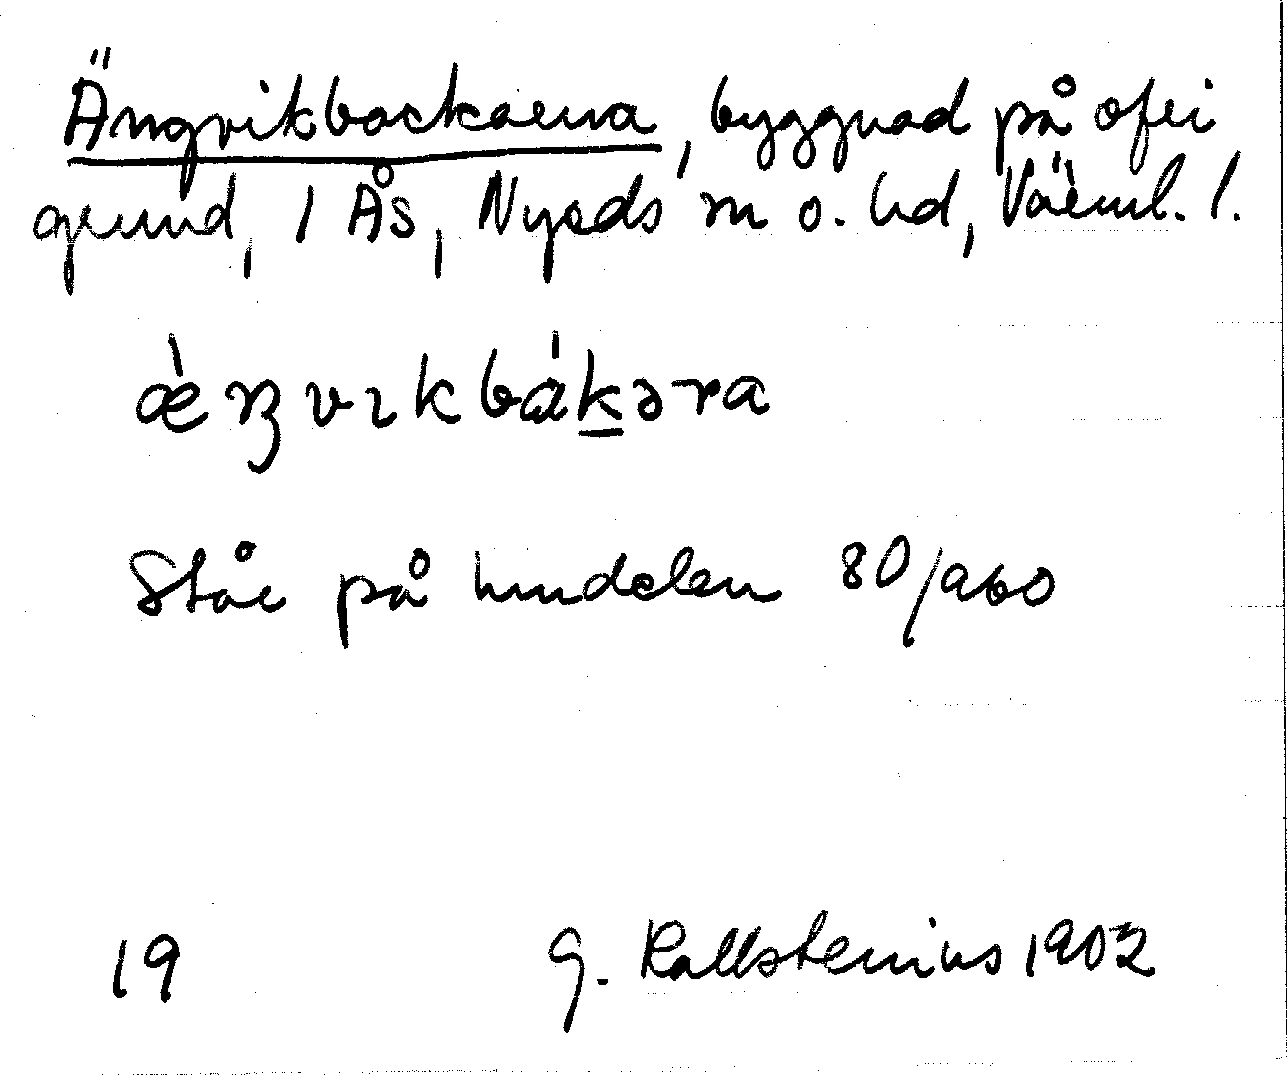 Ängvikbackarna, byggnad på ofri
grund, 1 Ås, Nyeds sn o. hd, Värml. l.
ǽŋvıkbákəra
Står på hmdelen 80/960
19 G. Kallstenius 1902